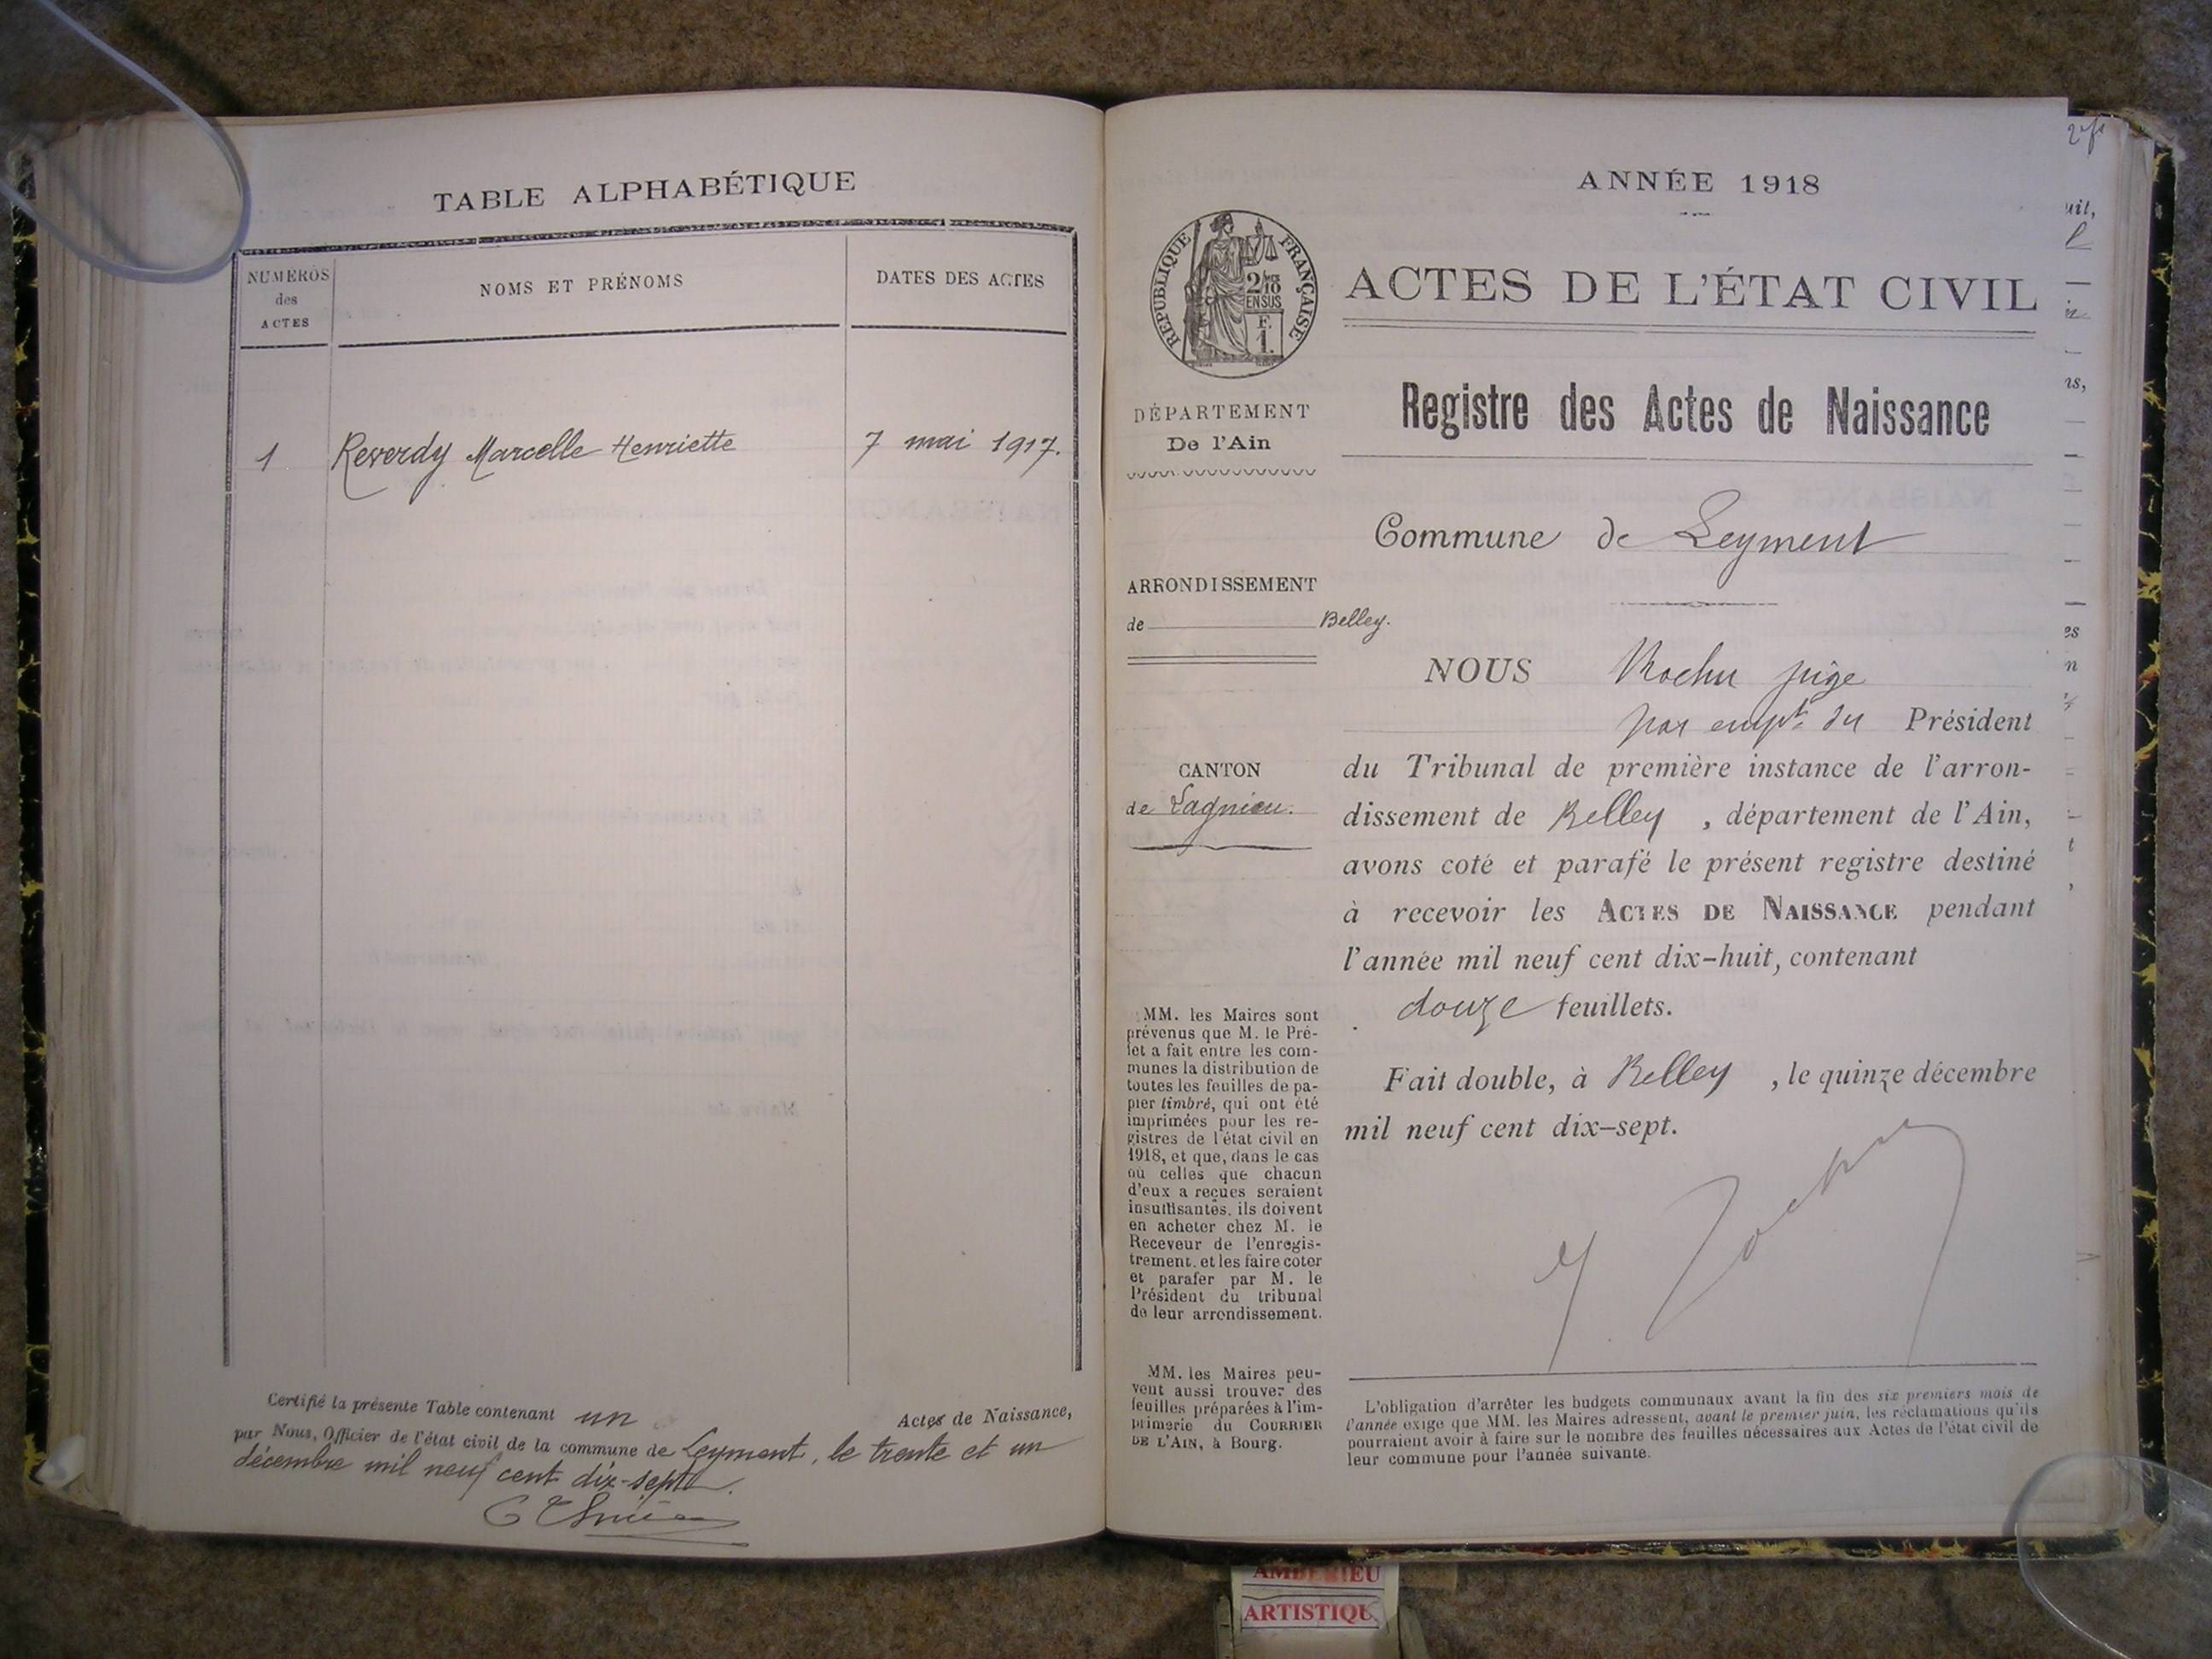 TABLE ALPHABÉTIQUE
NUMÉROS
des
ACTES
NOMS ET PRÉNOMS
DATES DES ACTES
1 Reverdy Marcelle Henriette 7 mai 1917.
Certifié la présente Table contenant un Actes de Naissance,
par Nous, Officier de l'état civil de la commune de Leyment, le trente et un
décembre mil neuf cent dix-sept.
ANNÉE 1918
RÉPUBLIQUE FRANÇAISE
2/10
EN SUS
F.
1.
ACTES DE L'ÉTAT CIVIL
DÉPARTEMENT
De l'Ain
Registre des Actes de Naissance
Commune de Leyment
ARRONDISSEMENT
de Belley.
CANTON
de Lagnieu.
NOUS Rochu juge
par empt. du Président
du Tribunal de première instance de l'arron-
dissement de Belley, département de l'Ain,
avons coté et parafé le présent registre destiné
à recevoir les ACTES DE NAISSANCE pendant
l'année mil neuf cent dix-huit, contenant
douze feuillets.
Fait double, à Belley, le quinze décembre
mil neuf cent dix-sept.
MM. les Maires sont
prévenus que M. le Pré-
fet a fait entre les com-
munes la distribution de
toutes les feuilles de pa-
pier timbré, qui ont été
imprimées pour les re-
gistres de l'état civil en
1918, et que, dans le cas
où celles que chacun
d'eux a reçues seraient
insuffisantes, ils doivent
en acheter chez M. le
Receveur de l'enregis-
trement, et les faire coter
et parafer par M. le
Président du tribunal
de leur arrondissement.
MM. les Maires peu-
vent aussi trouver des
feuilles préparées à l'im-
primerie du COURRIER
DE L'AIN, à Bourg.
L'obligation d'arrêter les budgets communaux avant la fin des six premiers mois de
l'année exige que MM. les Maires adressent, avant le premier juin, les réclamations qu'ils
pourraient avoir à faire sur le nombre des feuilles nécessaires aux Actes de l'état civil de
leur commune pour l'année suivante.
AMBERIEU
ARTISTIQU